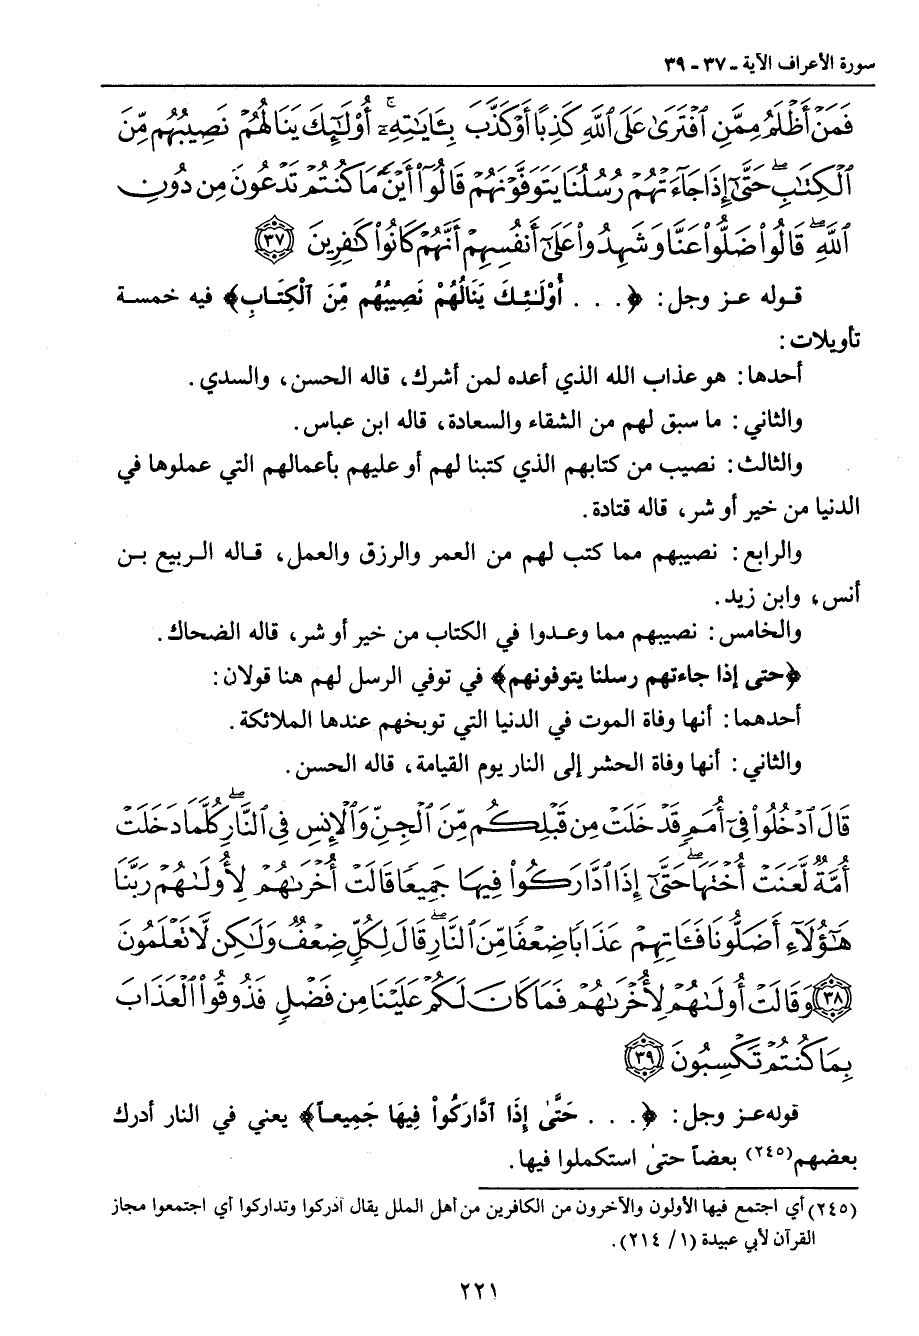 سورة الأعراف الآية - ٣٧ - ٣٩
فَمَنْ أَظْلَمُ مِمَّنِ ٱفْتَرَىٰ عَلَى ٱللَّهِ كَذِبًا أَوْ كَذَّبَ بِـَٔايَـٰتِهِۦٓ ۚ أُو۟لَـٰٓئِكَ يَنَالُهُمْ نَصِيبُهُم مِّنَ
ٱلْكِتَـٰبِ ۖ حَتَّىٰٓ إِذَا جَآءَتْهُمْ رُسُلُنَا يَتَوَفَّوْنَهُمْ قَالُوٓا۟ أَيْنَ مَا كُنتُمْ تَدْعُونَ مِن دُونِ
ٱللَّهِ ۖ قَالُوا۟ ضَلُّوا۟ عَنَّا وَشَهِدُوا۟ عَلَىٰٓ أَنفُسِهِمْ أَنَّهُمْ كَانُوا۟ كَـٰفِرِينَ ٣٧
قوله عز وجل: ﴿. . . أُوْلَـٰئِكَ يَنَالُهُمْ نَصِيبُهُم مِّنَ الْكِتَابِ﴾ فيه خمسة
تأويلات:
أحدها: هو عذاب الله الذي أعده لمن أشرك، قاله الحسن، والسدي.
والثاني: ما سبق لهم من الشقاء والسعادة، قاله ابن عباس.
والثالث: نصيب من كتابهم الذي كتبنا لهم أو عليهم بأعمالهم التي عملوها في
الدنيا من خير أو شر، قاله قتادة.
والرابع: نصيبهم مما كتب لهم من العمر والرزق والعمل، قاله الربيع بن
أنس، وابن زيد.
والخامس: نصيبهم مما وعدوا في الكتاب من خير أو شر، قاله الضحاك.
﴿حتى إذا جاءتهم رسلنا يتوفونهم﴾ في توفي الرسل لهم هنا قولان:
أحدهما: أنها وفاة الموت في الدنيا التي توبخهم عندها الملائكة.
والثاني: أنها وفاة الحشر إلى النار يوم القيامة، قاله الحسن.
قَالَ ٱدْخُلُوا۟ فِىٓ أُمَمٍ قَدْ خَلَتْ مِن قَبْلِكُم مِّنَ ٱلْجِنِّ وَٱلْإِنسِ فِى ٱلنَّارِ ۖ كُلَّمَا دَخَلَتْ
أُمَّةٌ لَّعَنَتْ أُخْتَهَا ۖ حَتَّىٰٓ إِذَا ٱدَّارَكُوا۟ فِيهَا جَمِيعًا قَالَتْ أُخْرَىٰهُمْ لِأُولَىٰهُمْ رَبَّنَا
هَـٰٓؤُلَآءِ أَضَلُّونَا فَـَٔاتِهِمْ عَذَابًا ضِعْفًا مِّنَ ٱلنَّارِ ۖ قَالَ لِكُلٍّ ضِعْفٌ وَلَـٰكِن لَّا تَعْلَمُونَ
٣٨ وَقَالَتْ أُولَىٰهُمْ لِأُخْرَىٰهُمْ فَمَا كَانَ لَكُمْ عَلَيْنَا مِن فَضْلٍ فَذُوقُوا۟ ٱلْعَذَابَ
بِمَا كُنتُمْ تَكْسِبُونَ ٣٩
قوله عز وجل: ﴿. . . حَتَّىٰ إِذَا ادَّارَكُواْ فِيهَا جَمِيعاً﴾ يعني في النار أدرك
بعضهم(٢٤٥) بعضاً حتىٰ استكملوا فيها.
(٢٤٥) أي اجتمع فيها الأولون والآخرون من الكافرين من أهل الملل يقال أدركوا وتداركوا أي اجتمعوا مجاز
القرآن لأبي عبيدة (١/ ٢١٤).
٢٢١